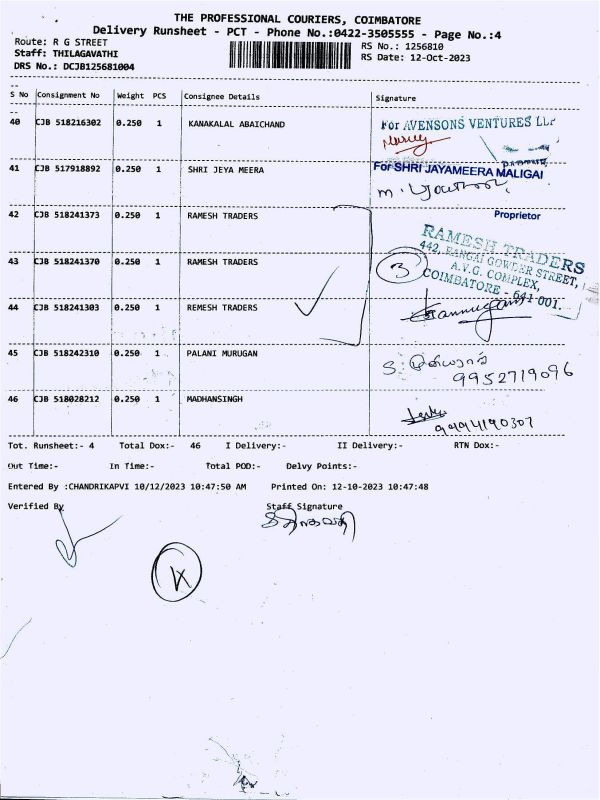 THE PROFESSIONAL COURIERS, COIMBATORE
Delivery Runsheet - PCT - Phone No.:0422-3505555 - Page No.:4
Route: R G STREET RS No.: 1256810
Staff: THILAGAVATHI RS Date: 12-Oct-2023
DRS No.: DCJB125681004
S No Consignment No Weight PCS Consignee Details Signature
40 CJB 518216302 0.250 1 KANAKALAL ABAICHAND For AVENSONS VENTURES LLP
41 CJB 517918892 0.250 1 SHRI JEYA MEERA For SHRI JAYAMEERA MALIGAI
Proprietor
42 CJB 518241373 0.250 1 RAMESH TRADERS
43 CJB 518241370 0.250 1 RAMESH TRADERS
3
RAMESH TRADERS
442, RANGAI GOWDER STREET,
A.V.G. COMPLEX,
COIMBATORE - 641 001.
44 CJB 518241303 0.250 1 REMESH TRADERS
45 CJB 518242310 0.250 1 PALANI MURUGAN
9952719096
46 CJB 518028212 0.250 1 MADHANSINGH
9994190307
Tot. Runsheet:- 4 Total Dox:- 46 I Delivery:- II Delivery:- RTN Dox:-
Out Time:- In Time:- Total POD:- Delvy Points:-
Entered By :CHANDRIKAPVI 10/12/2023 10:47:50 AM Printed On: 12-10-2023 10:47:48
Verified By Staff Signature